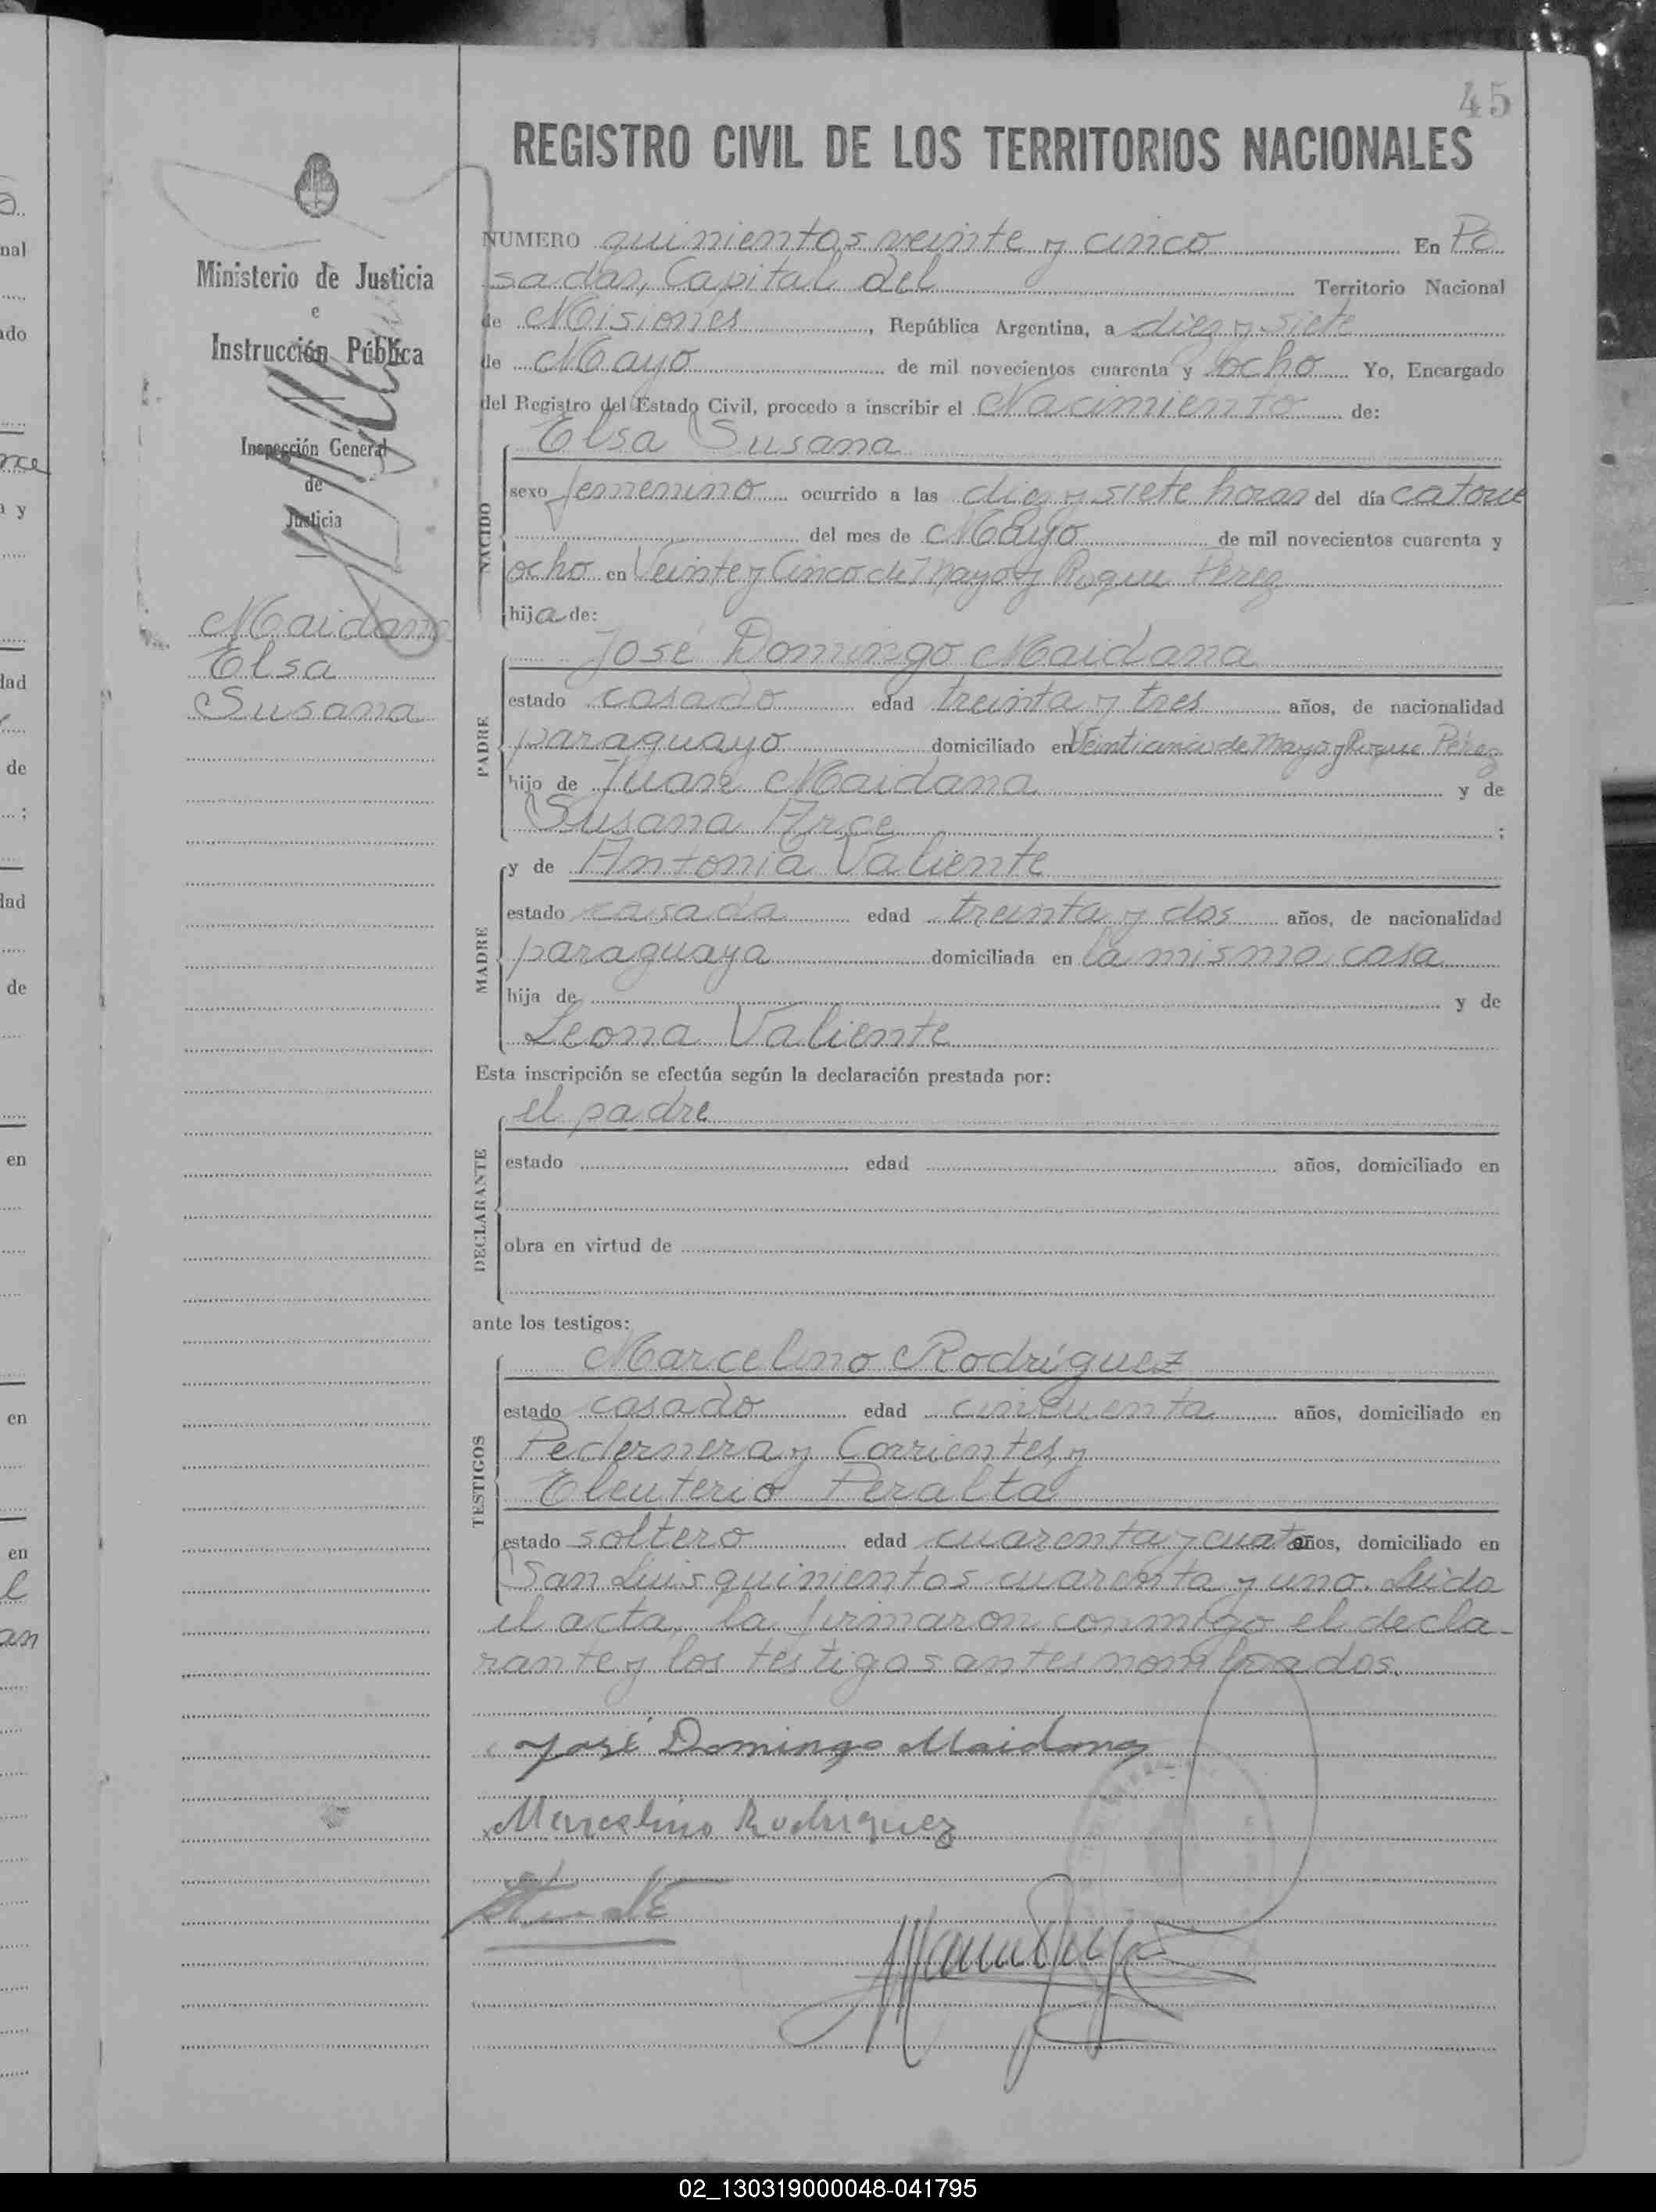 45
REGISTRO CIVIL DE LOS TERRITORIOS NACIONALES
Ministerio de Justicia
e
Instrucción Pública
Inspección General
de
Justicia
Maidana
Elsa
Susana
NUMERO quinientos veinte y cinco En Po
sadas, Capital del Territorio Nacional
de Misiones, República Argentina, a diez y siete
de Mayo de mil novecientos cuarenta y ocho Yo, Encargado
del Registro del Estado Civil, procedo a inscribir el Nacimiento de:
NACIDO
Elsa Susana
sexo femenino ocurrido a las diez y siete horas del día catorce
del mes de Mayo de mil novecientos cuarenta y
ocho en Veinte y Cinco de Mayo y Roque Pérez
hija de:
PADRE
José Domingo Maidana
estado casado edad treinta y tres años, de nacionalidad
paraguayo domiciliado en Veinticinco de Mayo y Roque Pérez
hijo de Juan Maidana y de
Susana Arce;
MADRE
y de Antonia Valiente
estado casada edad treinta y dos años, de nacionalidad
paraguaya domiciliada en la misma casa
hija de y de
Leona Valiente
Esta inscripción se efectúa según la declaración prestada por:
DECLARANTE
el padre
estado edad años, domiciliado en
obra en virtud de
ante los testigos:
TESTIGOS
Marcelino Rodríguez
estado casado edad cincuenta años, domiciliado en
Pedernera y Corrientes y
Eleuterio Peralta
estado soltero edad cuarenta y cuatro años, domiciliado en
San Luis quinientos cuarenta y uno. Leida
el acta, la firmaron conmigo el decla-
rante y los testigos antes nombrados.
José Domingo Maidana
Marcelino Rodriguez
02_130319000048-041795